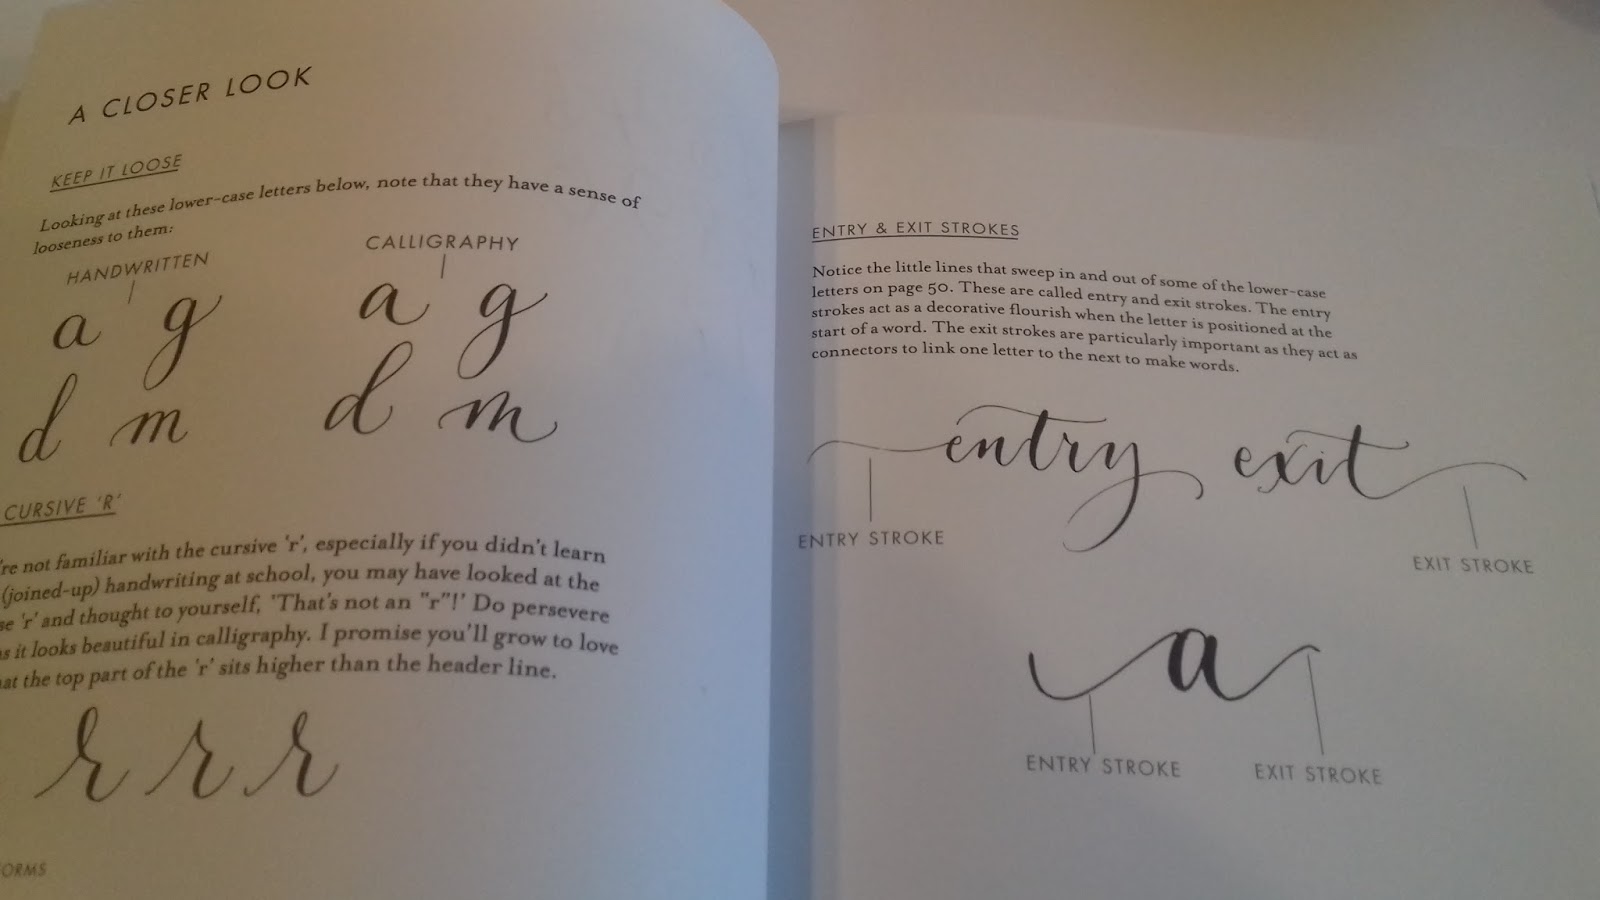 A CLOSER LOOK
KEEP IT LOOSE
Looking at these lower-case letters below, note that they have a sense of
looseness to them:
HANDWRITTEN
CALLIGRAPHY
a g
a g
d m
d m
CURSIVE 'R'
're not familiar with the cursive 'r', especially if you didn't learn
(joined-up) handwriting at school, you may have looked at the
se 'r' and thought to yourself, 'That's not an "r"!' Do persevere
as it looks beautiful in calligraphy. I promise you'll grow to love
hat the top part of the 'r' sits higher than the header line.
r r r
ORMS
ENTRY & EXIT STROKES
Notice the little lines that sweep in and out of some of the lower-case
letters on page 50. These are called entry and exit strokes. The entry
strokes act as a decorative flourish when the letter is positioned at the
start of a word. The exit strokes are particularly important as they act as
connectors to link one letter to the next to make words.
entry exit
ENTRY STROKE
EXIT STROKE
a
ENTRY STROKE
EXIT STROKE